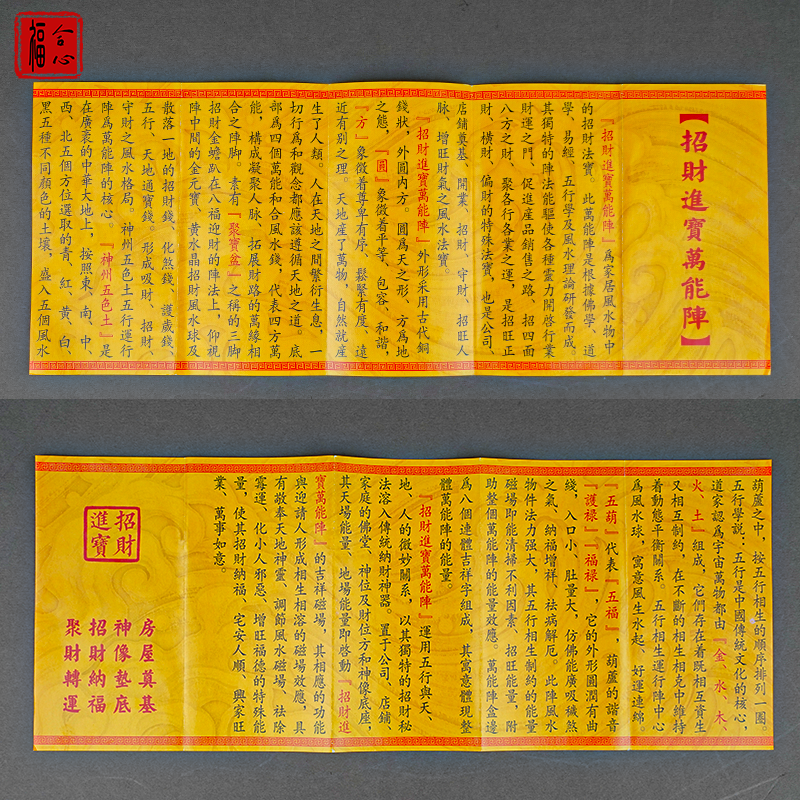 福
合心
【招財進寶萬能陣】
『招財進寶萬能陣』爲家居風水物中
的招財法寶。此萬能陣是根據佛學、道
學、易經、五行學及風水理論研發而成。
其獨特的陣法能驅使各種靈力開啓行業
財運之門、促進産品銷售之路、招四面
八方之財、聚各行各業之運,是招旺正
財、橫財、偏財的特殊法寶,也是公司、
店鋪奠基、開業、招財、守財、招旺人
脉、增旺財氣之風水法寶。
『招財進寶萬能陣』外形采用古代銅
錢狀,外圓内方。圓爲天之形,方爲地
之態,『圓』象徵着平等、包容、和諧,
『方』象徵着尊卑有序,鬆緊有度,遠
近有别之理。天地産了萬物,自然就産
生了人類。人在天地之間繁衍生息,一
切行爲和觀念都應該遵循天地之道。底
部爲四個萬能和合風水錢,代表四方萬
能,構成凝聚人脉、拓展財路的萬緣相
合之陣脚,素有『聚寶盆』之稱的三脚
招財金蟾趴在八福迎財的陣法上,仰視
陣中間的金元寶、黄水晶招財風水球及
散落一地的招財錢、化煞錢、護歲錢、
五行、天地通寶錢。形成吸財、招財、
守財之風水格局。神州五色土五行運行
陣爲萬能陣的核心。『神州五色土』是
在廣袤的中華大地上,按照東、南、中、
西、北五個方位選取的青、紅、黄、白、
黑五種不同顔色的土壤,盛入五個風水
葫蘆之中,按五行相生的順序排列一圈。
五行學説:五行是中國傳統文化的核心,
道家認爲宇宙萬物都由『金、水、木、
火、土』組成,它們存在着既相互資生
又相互制約,在不斷的相生相克中維持
着動態平衡關系。五行相生運行陣中心
爲風水球,寓意風生水起、好運連綿。
『五葫』代表『五福』,葫蘆的諧音
『護禄』『福禄』,它的外形圓潤有曲
綫,入口小、肚量大,仿佛能廣吸穢煞
之氣、納福增祥、祛病解厄。此陣風水
物件法力强大,其五行相生制約的能量
磁場即能清掃不利因素、招旺能量,附
助整個萬能陣的能量效應。萬能陣盒邊
爲八個連體吉祥字組成,其寓意體現整
體萬能陣的能量。
『招財進寶萬能陣』運用五行與天、
地、人的微妙關系,以其獨特的招財秘
法溶入傳統納財神器。置于公司、店鋪、
家庭的佛堂、神位及財位方和神像底座,
其天場能量、地場能量即啓動『招財進
寶萬能陣』的吉祥磁場,其相應的功能
與迎請人形成相生相溶的磁場效應,具
有敬奉天地神靈、調節風水磁場、祛除
霉運、化小人邪忌、增旺福德的特殊能
量,使其招財納福、宅安人順、興家旺
業、萬事如意。
招財進寶
房屋奠基
神像墊底
招財納福
聚財轉運